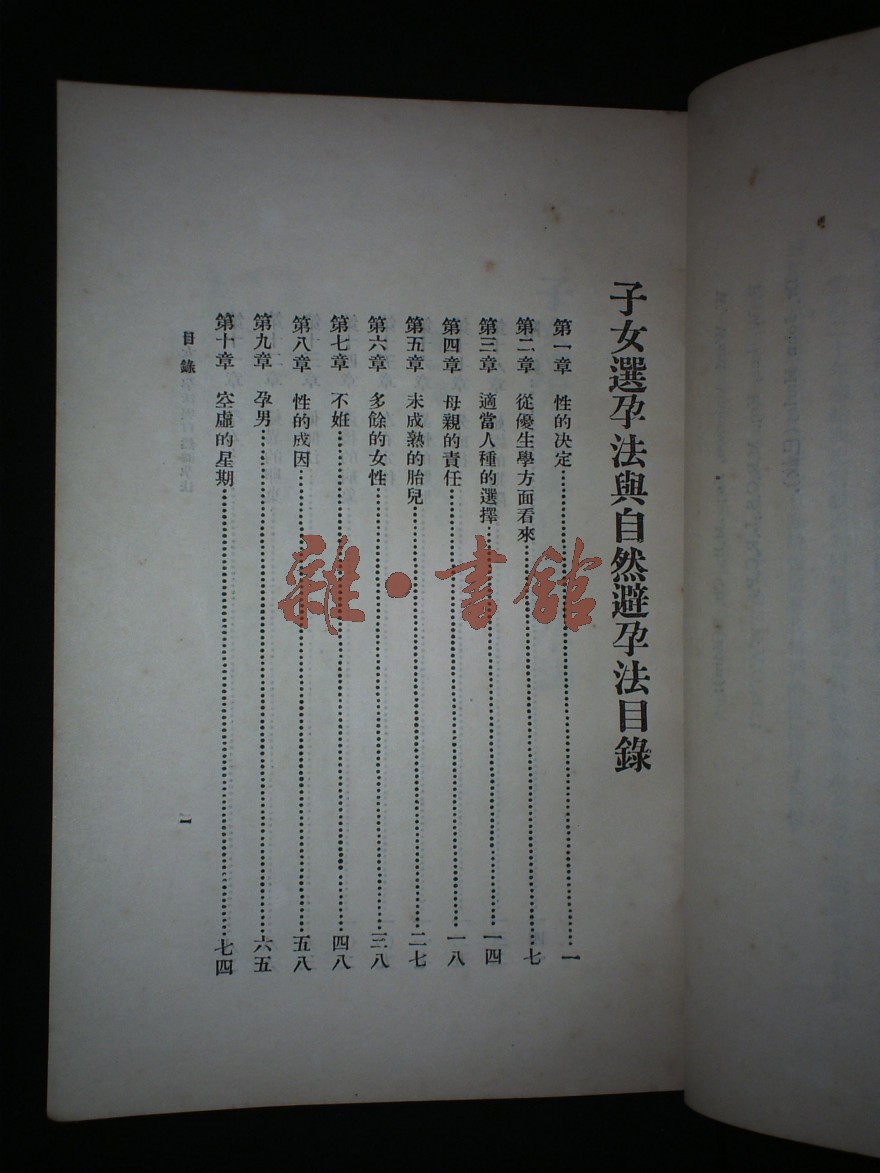 子女選孕法與自然避孕法目錄
第一章 性的决定…………一
第二章 從優生學方面看來…………七
第三章 適當人種的選擇…………一四
第四章 母親的責任…………一八
第五章 未成熟的胎兒…………二七
第六章 多餘的女性…………三八
第七章 不姙…………四八
第八章 性的成因…………五八
第九章 孕男…………六五
第十章 空虛的星期…………七四
目錄
一
雜·書館